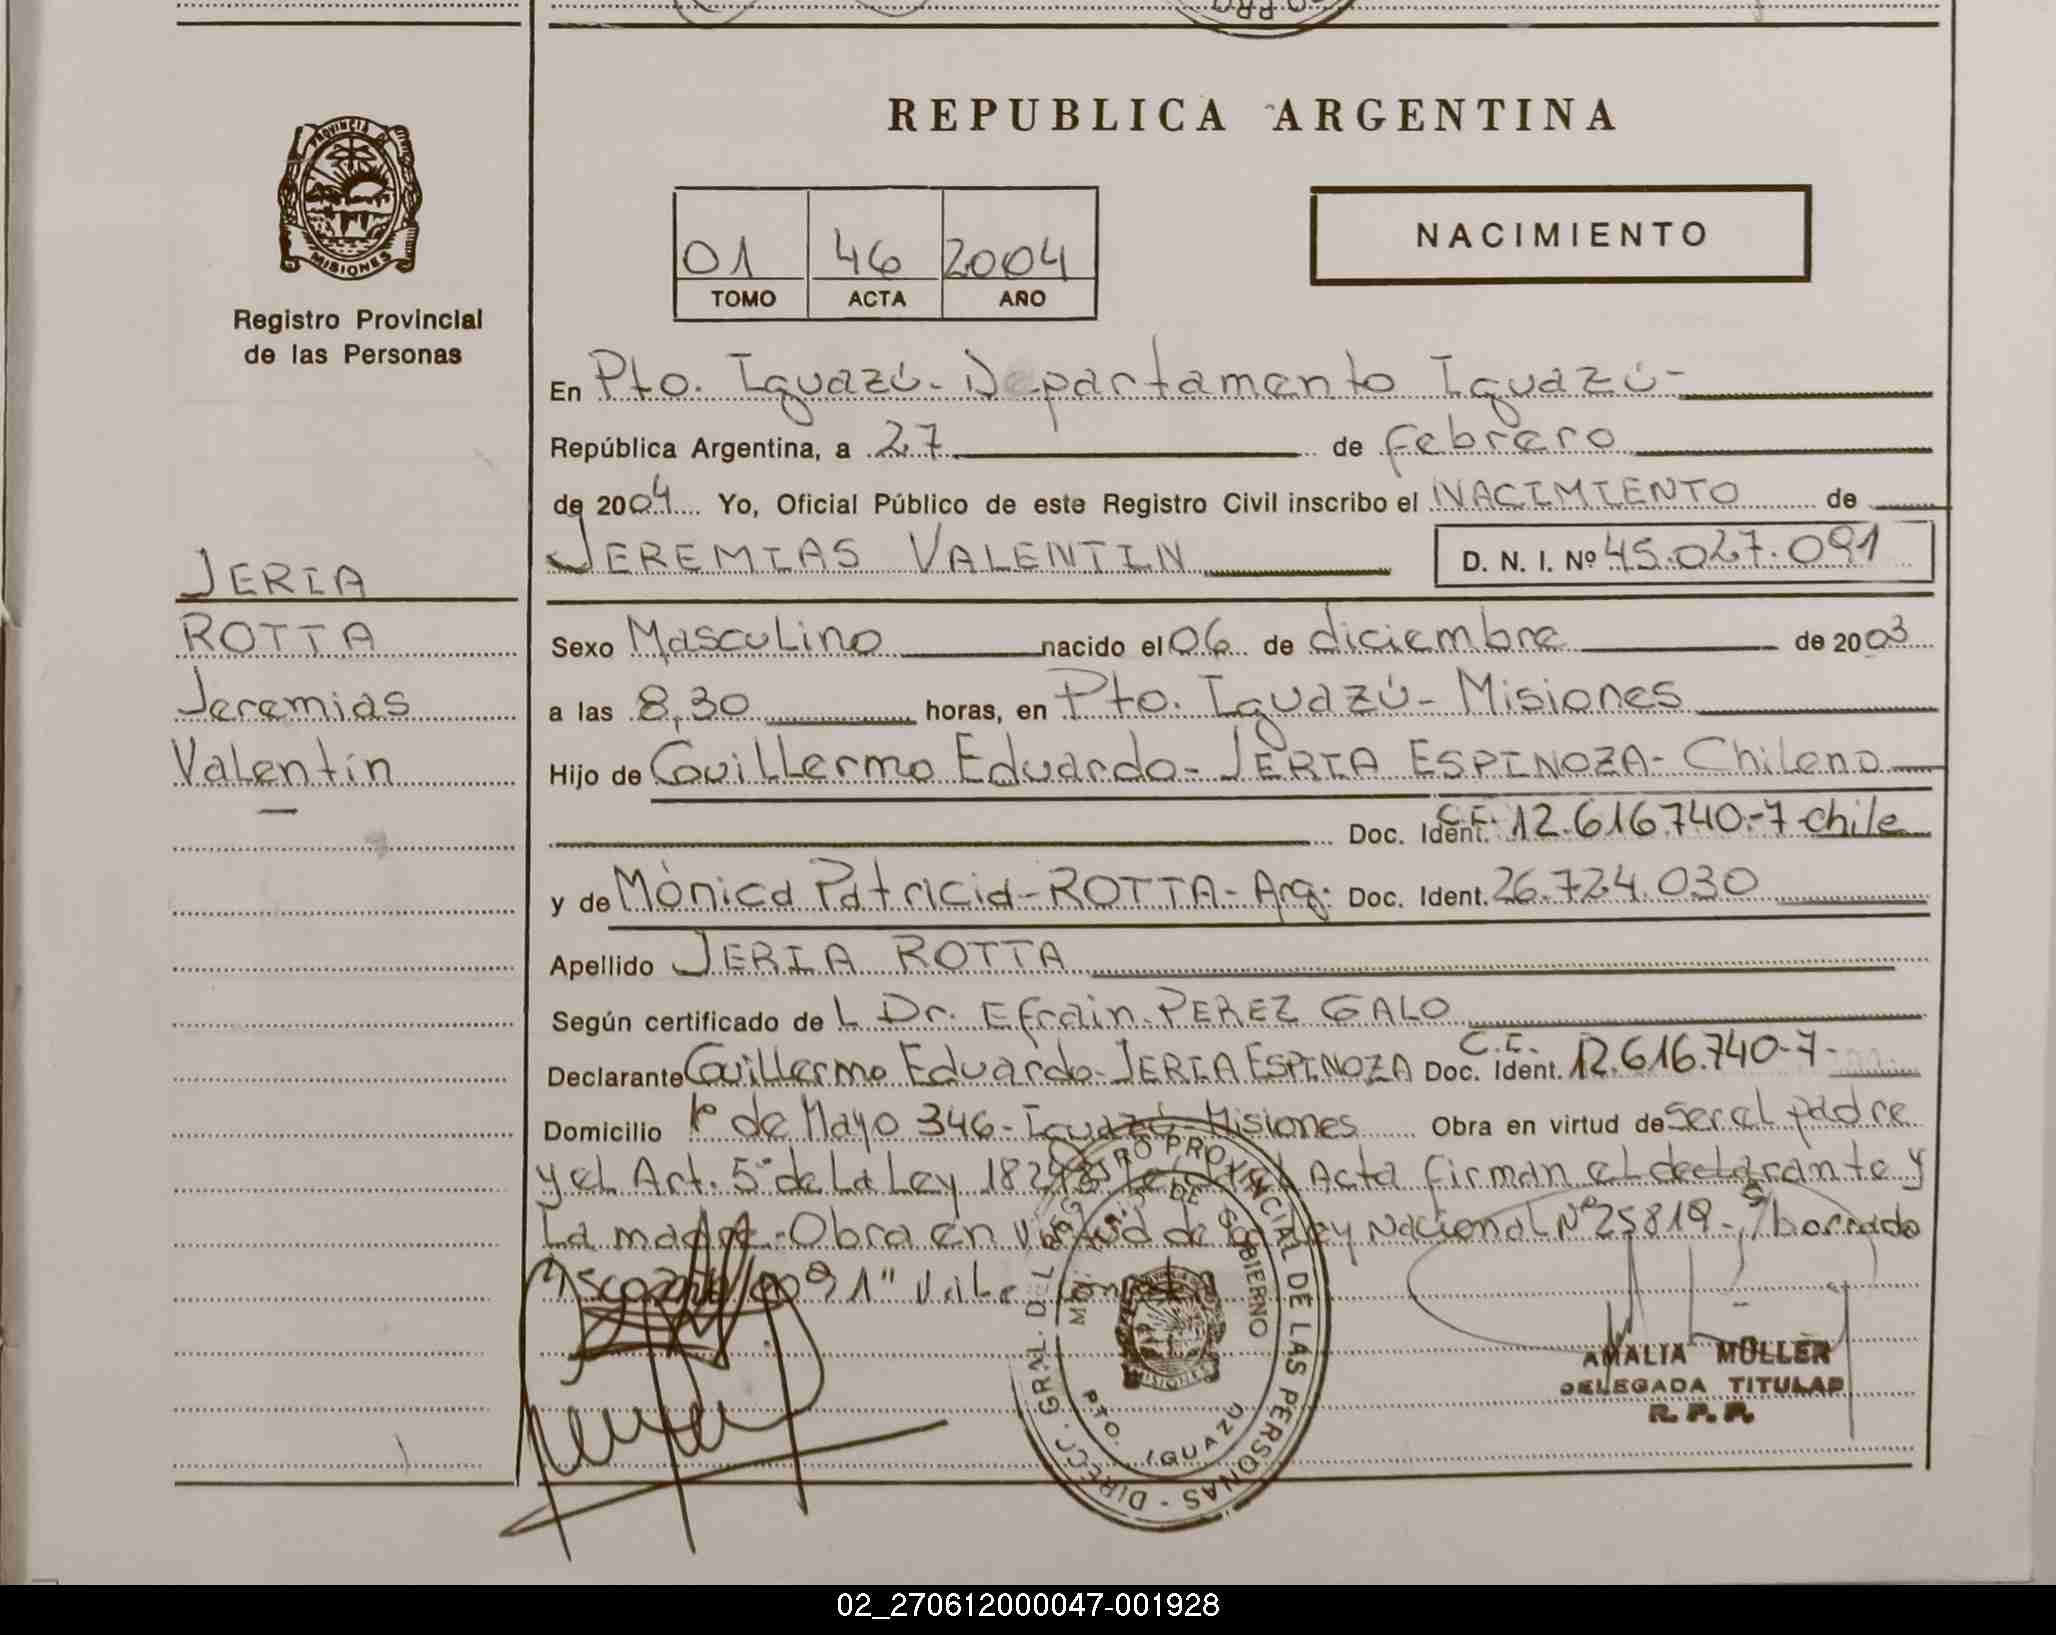 REPUBLICA ARGENTINA
PROVINCIA DE
MISIONES
Registro Provincial
de las Personas
NACIMIENTO
01 46 2004
TOMO ACTA AÑO
En Pto. Iguazú - Departamento Iguazú -
República Argentina, a 27 de febrero
de 2004 Yo, Oficial Público de este Registro Civil inscribo el NACIMIENTO de
JEREMIAS VALENTIN D. N. I. Nº 45.027.091
JERIA
ROTTA
Jeremias
Valentín
Sexo Masculino nacido el 06 de diciembre de 2003
a las 8,30 horas, en Pto. Iguazú - Misiones
Hijo de Guillermo Eduardo - JERIA ESPINOZA - Chileno
Doc. Ident. 12.616.740-7 chile
y de Mónica Patricia - ROTTA - Arg. Doc. Ident. 26.724.030
Apellido JERIA ROTTA
Según certificado de L Dr. Efrain PEREZ GALO
Declarante Guillermo Eduardo - JERIA ESPINOZA Doc. Ident. C.I. 12.616.740-7-
Domicilio 1º de Mayo 346 - Iguazú - Misiones Obra en virtud de ser el padre
y el Art. 5º de La Ley el Acta firman el declarante y
La madre - Obra en virtud de la Ley Nacional Nº 25819 - s/borrado
"091" Vale
DIRECC. GRAL. DEL REGISTRO PROVINCIAL DE LAS PERSONAS -
MINIST. DE GOBIERNO
MISIONES
PTO. IGUAZU
AMALIA MÜLLER
DELEGADA TITULAR
R. P. P.
02_270612000047-001928